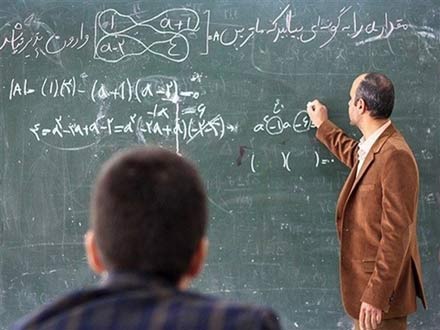 مقدار a را به گونه‌ای بیابید که ماتریس A= [1 a+1 / a-2 4] وارون پذیر نباشد
|A| = (1)(4) - (a+1)(a-2) = 0
4 = a² - 2a + a - 2 = a² (-2a + a) (-2-4)
a² -1 a -6
( ) ( ) = 0